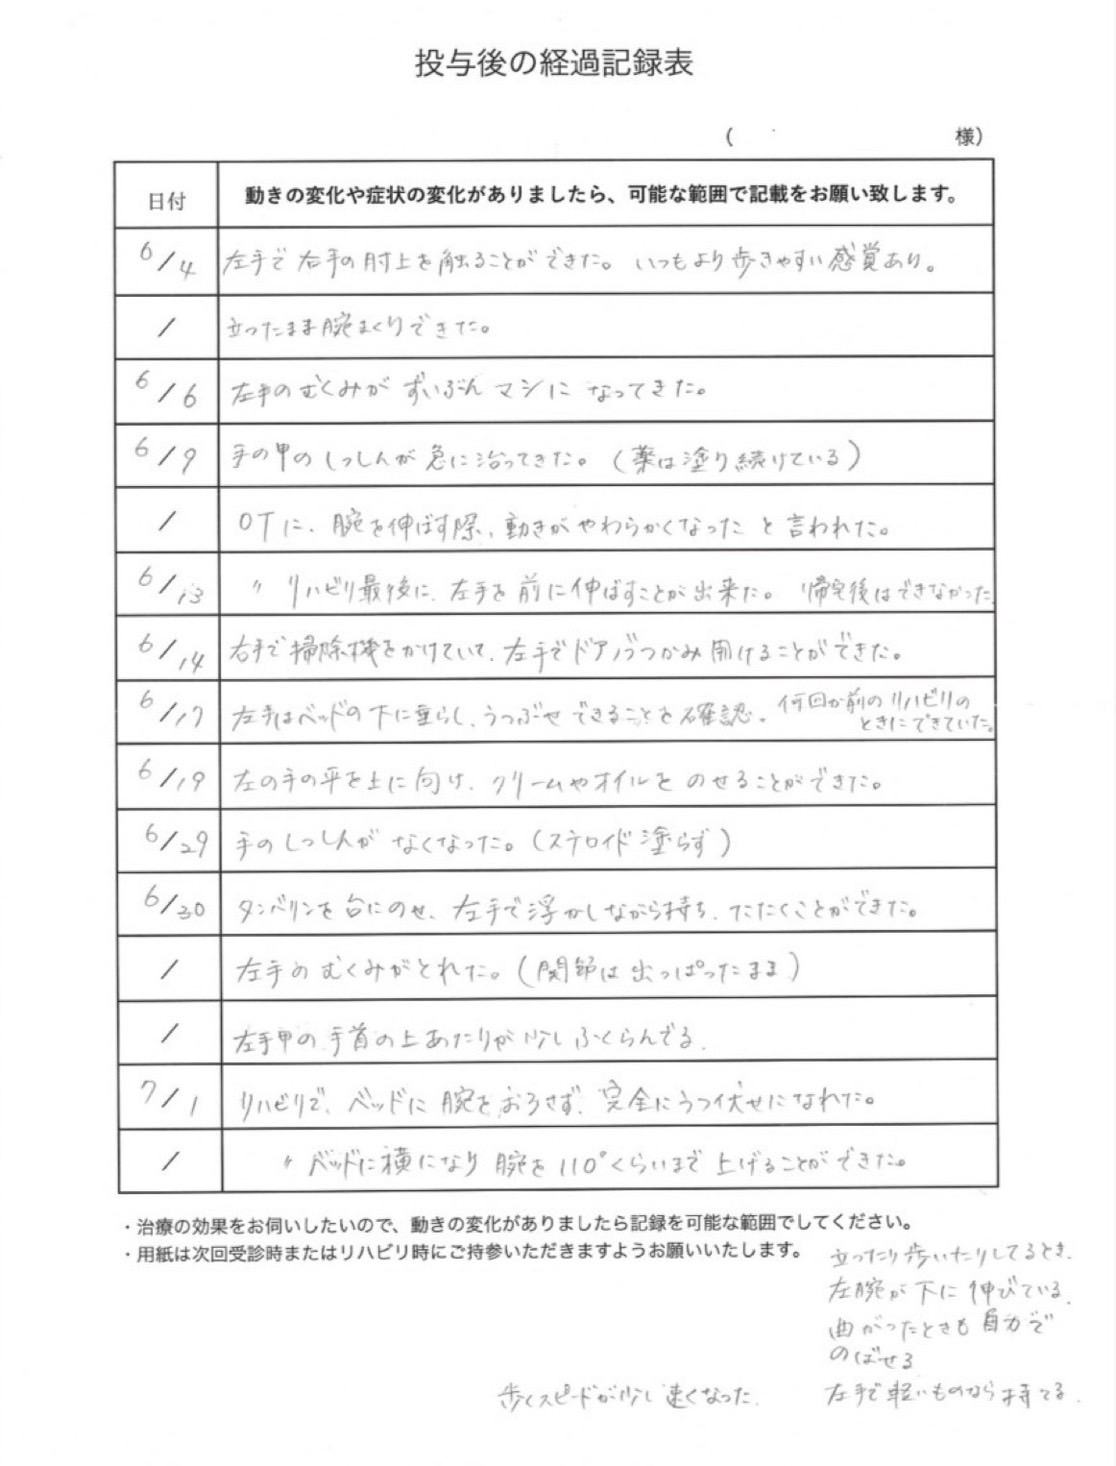 投与後の経過記録表
(　　　　様)
日付　動きの変化や症状の変化がありましたら、可能な範囲で記載をお願い致します。
6/4　左手で右手の肘上を触ることができた。いつもより歩きやすい感覚あり。
/　立ったまま腕まくりできた。
6/6　左手のむくみがずいぶんマシになってきた。
6/9　手の甲のしっしんが急に治ってきた。(薬は塗り続けている)
/　OTに、腕を伸ばす際、動きがやわらかくなったと言われた。
6/13　〃 リハビリ最後に、左手を前に伸ばすことが出来た。帰宅後はできなかった。
6/14　右手で掃除機をかけていて、左手でドアノブつかみ開けることができた。
6/17　左手はベッドの下に垂らし、うつぶせできることを確認。何回か前のリハビリの
ときにできていた。
6/19　左の手の平を上に向け、クリームやオイルをのせることができた。
6/29　手のしっしんがなくなった。(ステロイド塗らず)
6/30　タンバリンを台にのせ、左手で浮かしながら持ち、たたくことができた。
/　左手のむくみがとれた。(関節は出っぱったまま)
/　左手甲の手首の上あたりが少しふくらんでる.
7/1　リハビリで、ベッドに腕をおろさず、完全にうつ伏せになれた。
/　〃 ベッドに横になり腕を110°くらいまで上げることができた。
・治療の効果をお伺いしたいので、動きの変化がありましたら記録を可能な範囲でしてください。
・用紙は次回受診時またはリハビリ時にご持参いただきますようお願いいたします。
立ったり歩いたりしてるとき、
左腕が下に伸びている.
曲がったときも自力で
のばせる
歩くスピードが少し速くなった.
左手で軽いものなら持てる.